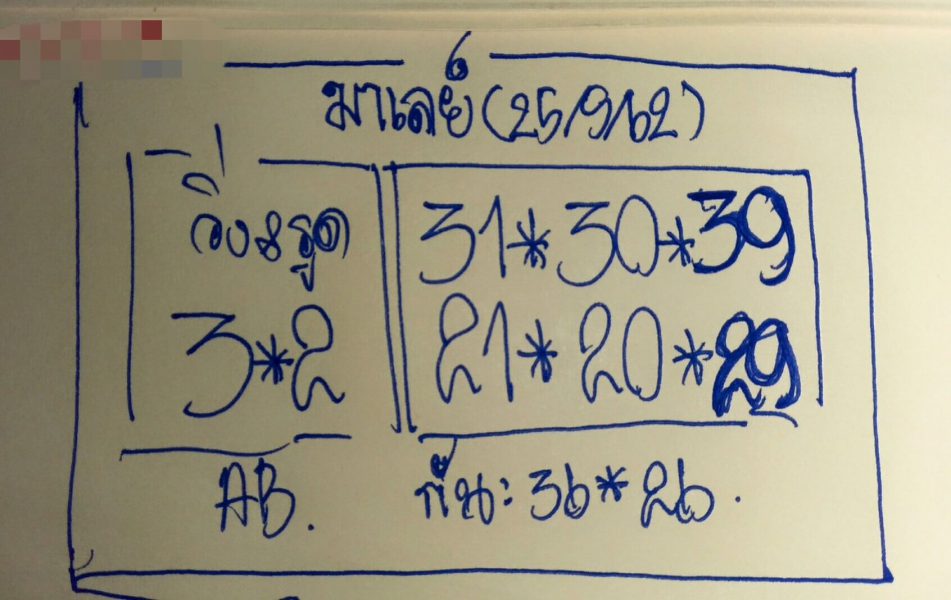 มาเลย์ (25/9/62)
วิ่งรูด
3*2
31*30*39
21*20*29
AB.
กั้น: 36*26.